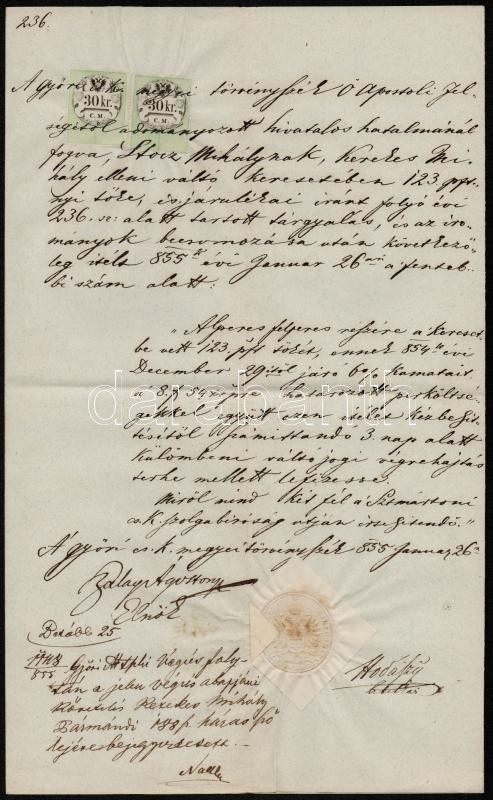 236.
A győri cs. k. megyei törvényszék Ő Apostoli Fel-
ségétől adományozott hivatalos hatalmánál
fogva, Stocz Mihálynak, Kerekes Mi-
hály elleni váltó keresetében 123 pft-
nyi tőke, és járulékai iránt folyó évi
236. sz: alatt tartott tárgyalás, és az iro-
mányok beoromozása után következő-
leg itélt 855k évi Januar 26án a fenteb-
bi szám alatt:
30 kr.
C. M.
30 kr.
C. M.
"Alperes felperes részére a kereset-
be vett 123 pft tőkét, ennek 854k évi
December 29től járó 6% kamatait
a 8 f 54 határozott perköltsé-
gekkel együtt ezen itélet kézbesi-
tésétől számittandó 3. nap alatt
különbeni váltójogi végrehajtás
terhe mellett lefizesse.
Miről mind két fél a Sztmártoni
cs. k. szolgabiróság utján értesitendő."
A győri cs. k. megyei törvényszék 855 Januar 26n
Zalay Ágoston
Elnök
25
1748/855 Győri végzés foly-
tán a jelen végzés alapjáni
követelés Kerekes Mihály
Bármándi
lejére bejegyeztetett.
Hodássy
darabanth